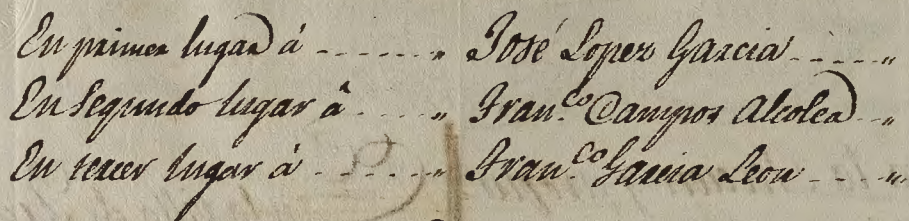 En primer lugar á ------ „ José Lopez Garcia ----- „
En Segundo lugar á ----- „ Fran.co Campos Alcolea -- „
En tercer lugar á ------ „ Fran.co Garcia Leon ---- „